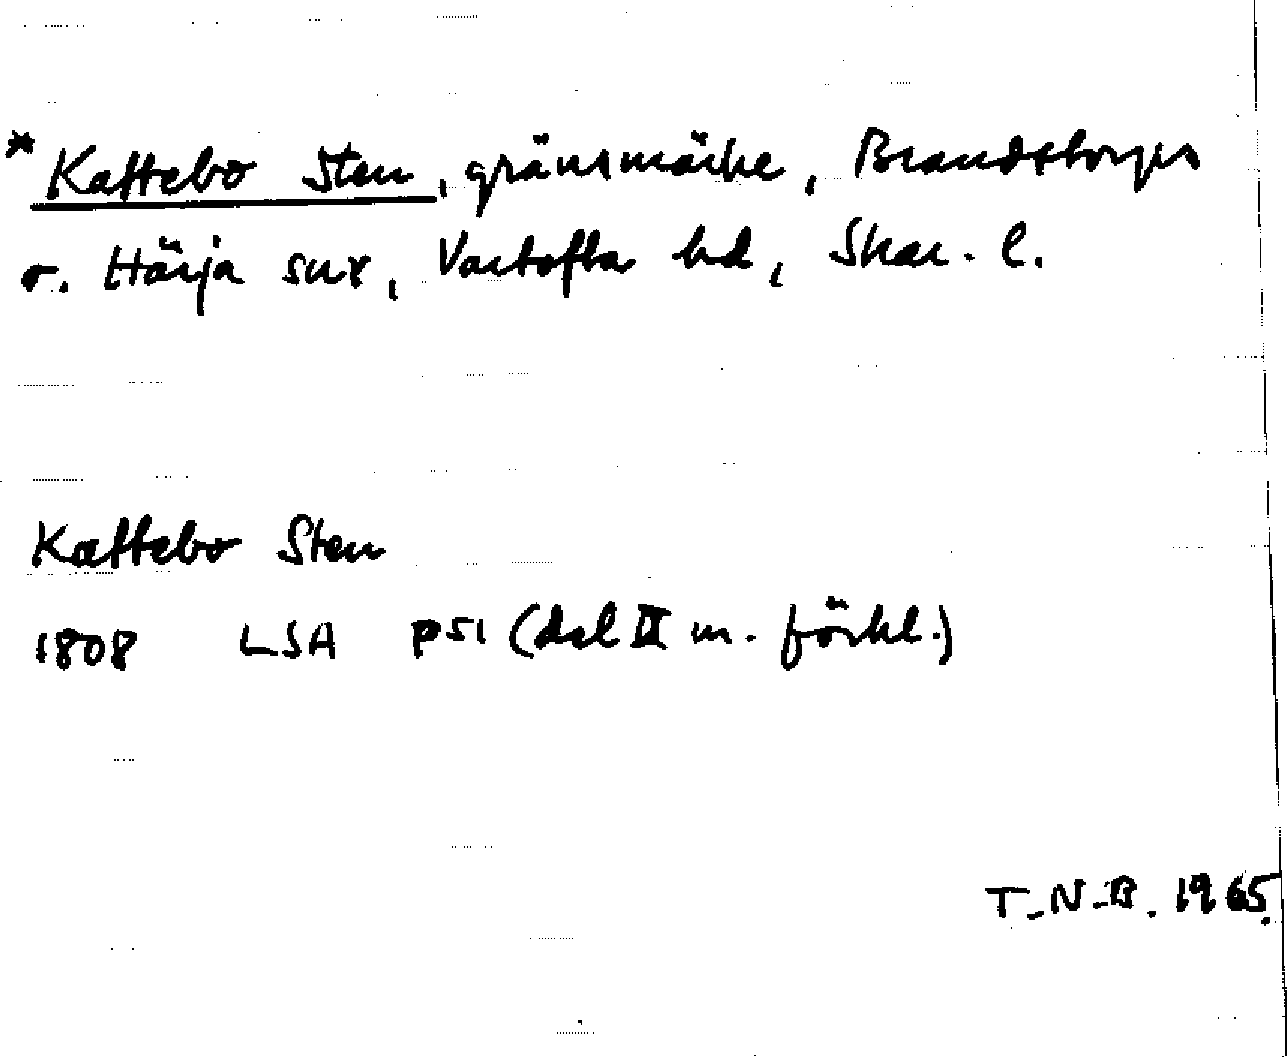 *Kattebo Sten, gränsmärke, Brandstorps
o. Härja snr, Vartofta hd, Skar. l.
Kattebo Sten
1808 LSA P51 (del II m. förkl.)
T.N.B. 1965.